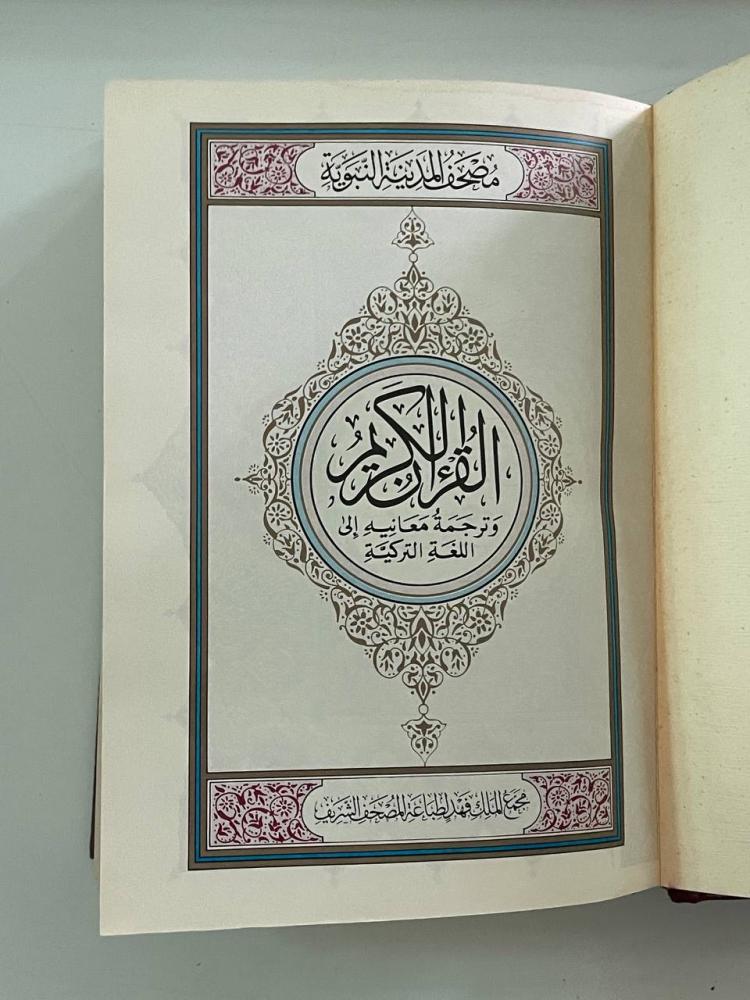 مصحف المدينة النبوية
القرءان الكريم
وترجمة معانيه إلى
اللغة التركية
مجمع الملك فهد لطباعة المصحف الشريف